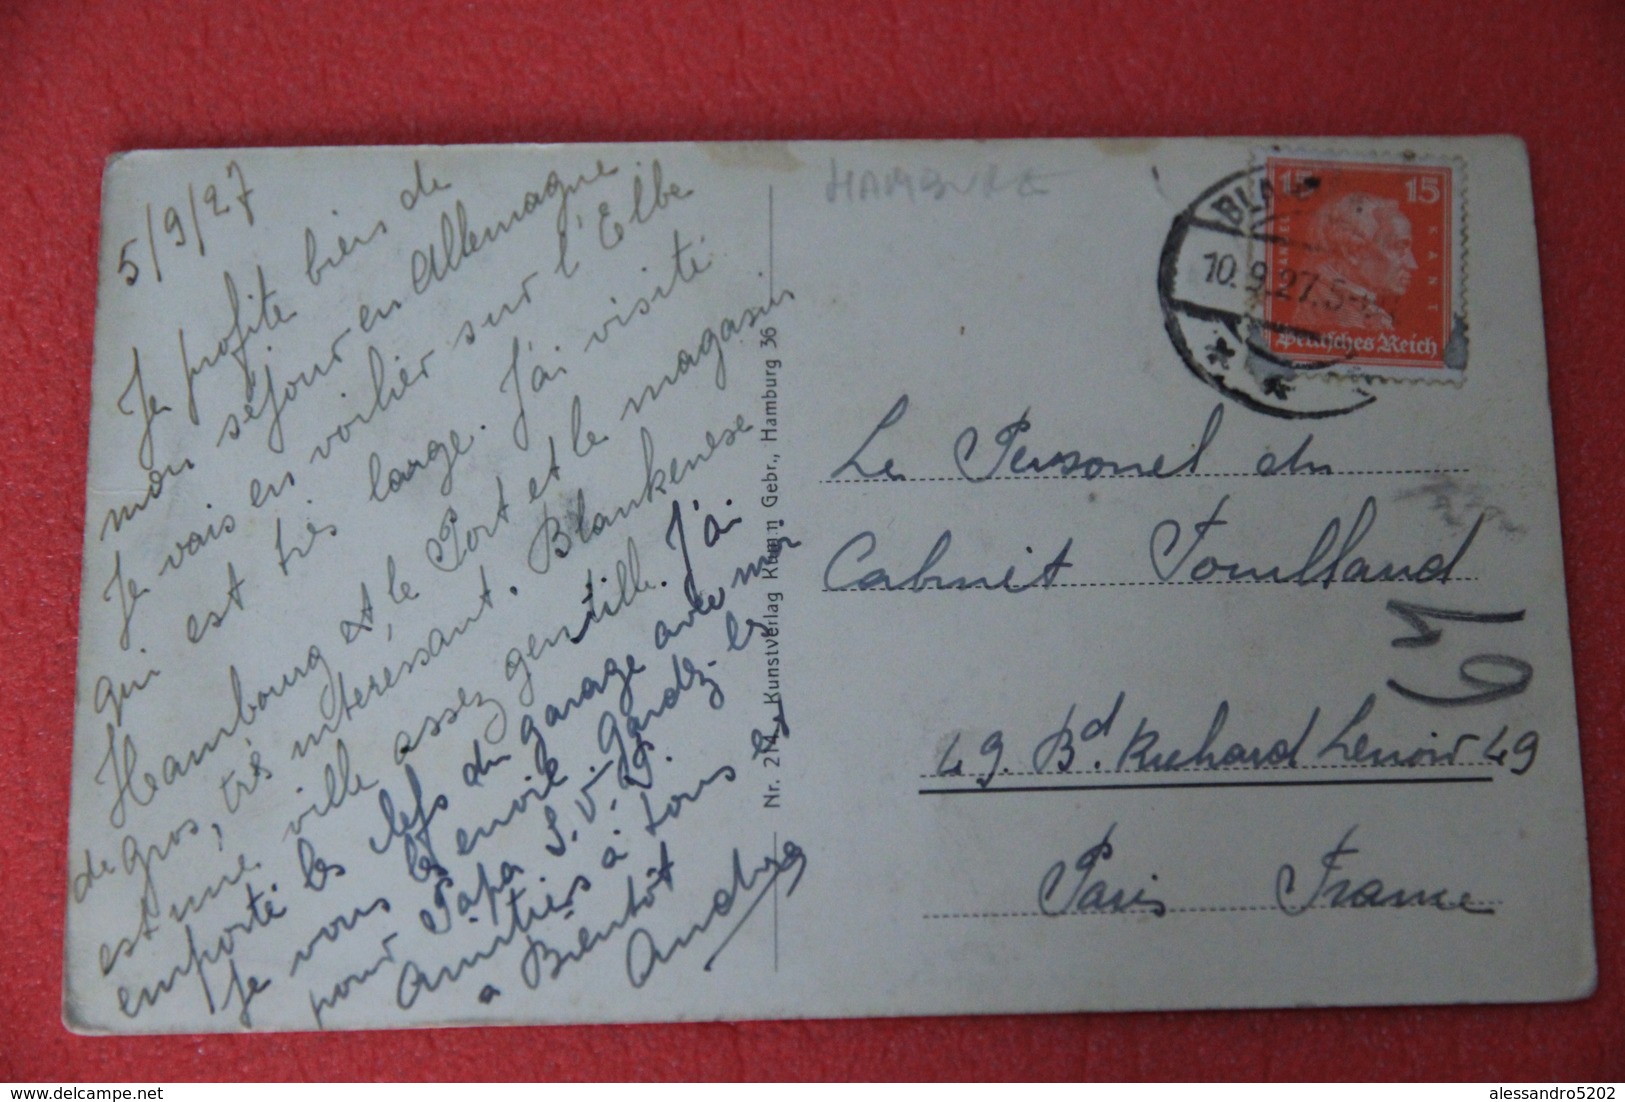 5/9/27
Je profite bien de
mon séjour en Allemagne
Je vais en voilier sur l'Elbe
qui est très large. J'ai visité
Hambourg et le Port et le magasin
de gros, très interessant. Blankenese
est une ville assez gentille. J'ai
emporté les clefs du garage avec moi
Je vous les envoie. Gardez-les
pour Papa S.V.P.
Amitiés à tous
à Bientôt
Andre
Kunstverlag
Gebr., Hamburg 36
HAMBURG
10.9.27.5-
15 15
KANT
Deutsches Reich
Le Personel du
Cabinet
49 Bd. Richard Lenoir 49
Paris France
61
delcampe.net
alessandro5202